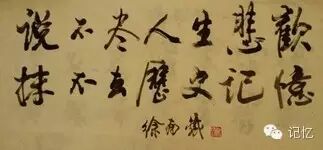 说不尽人生悲歡
抹不去歷史记憶
徐南鐵
记忆